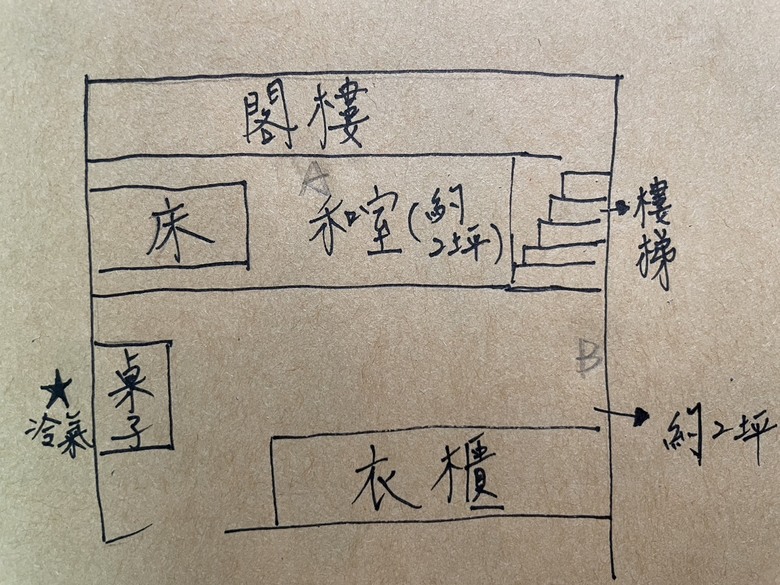 閣樓
A
床
和室(約
2坪)
樓
梯
B
桌
子
★
冷氣
約2坪
衣櫃